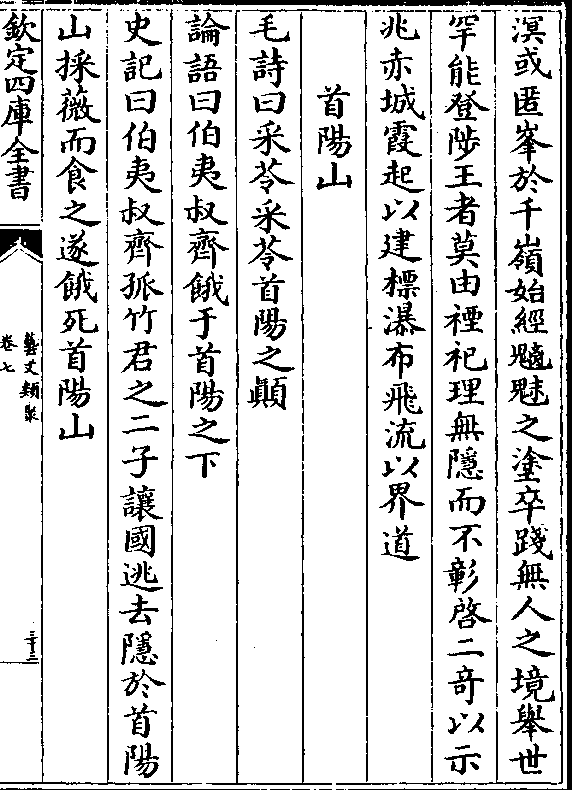 溟或匿峯於千嶺始經魑魅之塗卒踐無人之境舉世
罕能登陟王者莫由禋祀理無隱而不彰啓二竒以示
兆赤城霞起以建標瀑布飛流以界道
首陽山
毛詩曰采苓采苓首陽之顚
論語曰伯夷叔齊餓于首陽之下
史記曰伯夷叔齊孤竹君之二子讓國逃去隱於首陽
山採薇而食之遂餓死首陽山
欽定四庫全書
藝文類聚
卷七
三十三